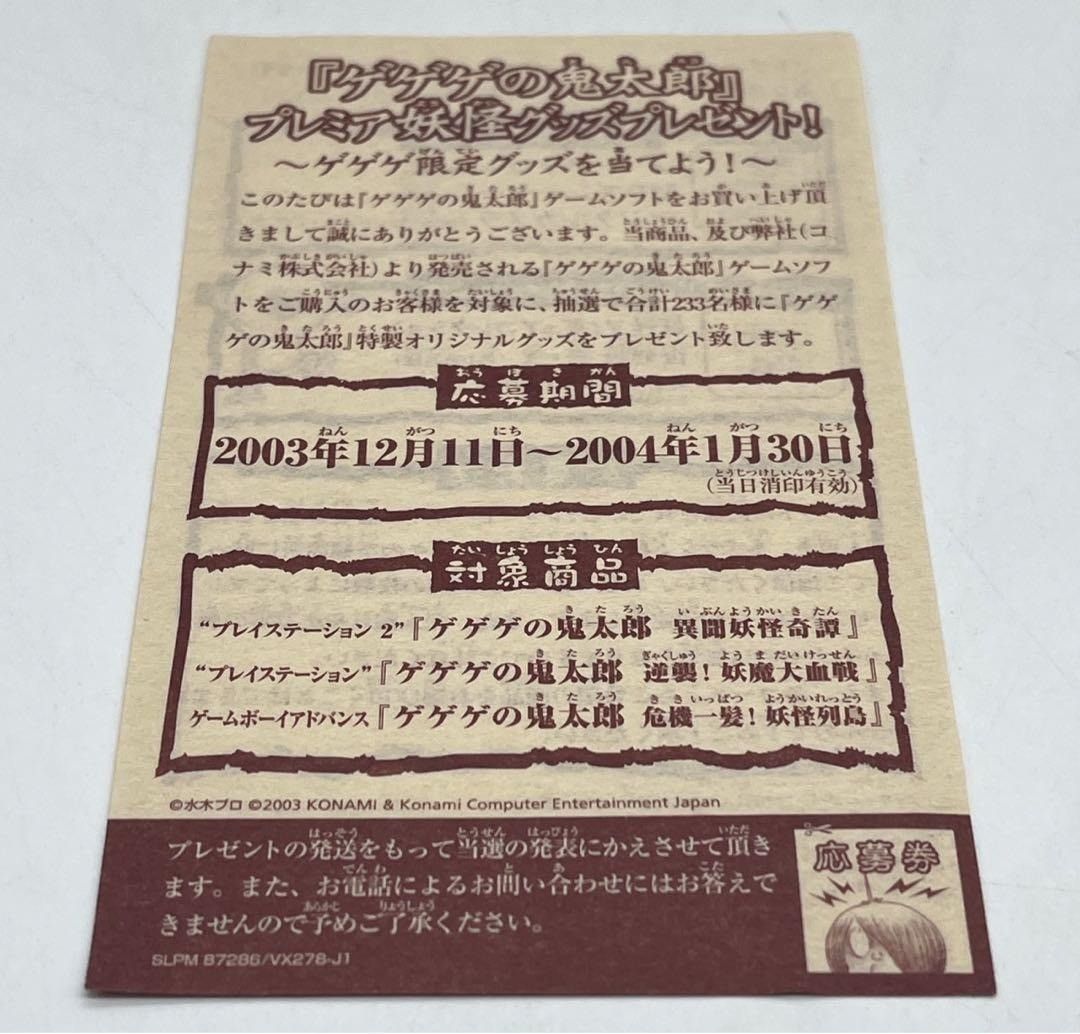 『ゲゲゲの鬼太郎』
プレミア妖怪グッズプレゼント!
～ゲゲゲ限定グッズを当てよう!～
このたびは『ゲゲゲの鬼太郎』ゲームソフトをお買い上げ頂
きまして誠にありがとうございます。当商品、及び弊社(コ
ナミ株式会社)より発売される『ゲゲゲの鬼太郎』ゲームソフ
トをご購入のお客様を対象に、抽選で合計233名様に『ゲゲ
ゲの鬼太郎』特製オリジナルグッズをプレゼント致します。
応募期間
2003年12月11日～2004年1月30日
(当日消印有効)
対象商品
“プレイステーション 2”『ゲゲゲの鬼太郎 異聞妖怪奇譚』
“プレイステーション”『ゲゲゲの鬼太郎 逆襲! 妖魔大血戦』
ゲームボーイアドバンス『ゲゲゲの鬼太郎 危機一髪! 妖怪列島』
©水木プロ ©2003 KONAMI & Konami Computer Entertainment Japan
プレゼントの発送をもって当選の発表にかえさせて頂き
ます。また、お電話によるお問い合わせにはお答えで
きませんので予めご了承ください。
SLPM 87286/VX278-J1
応募券